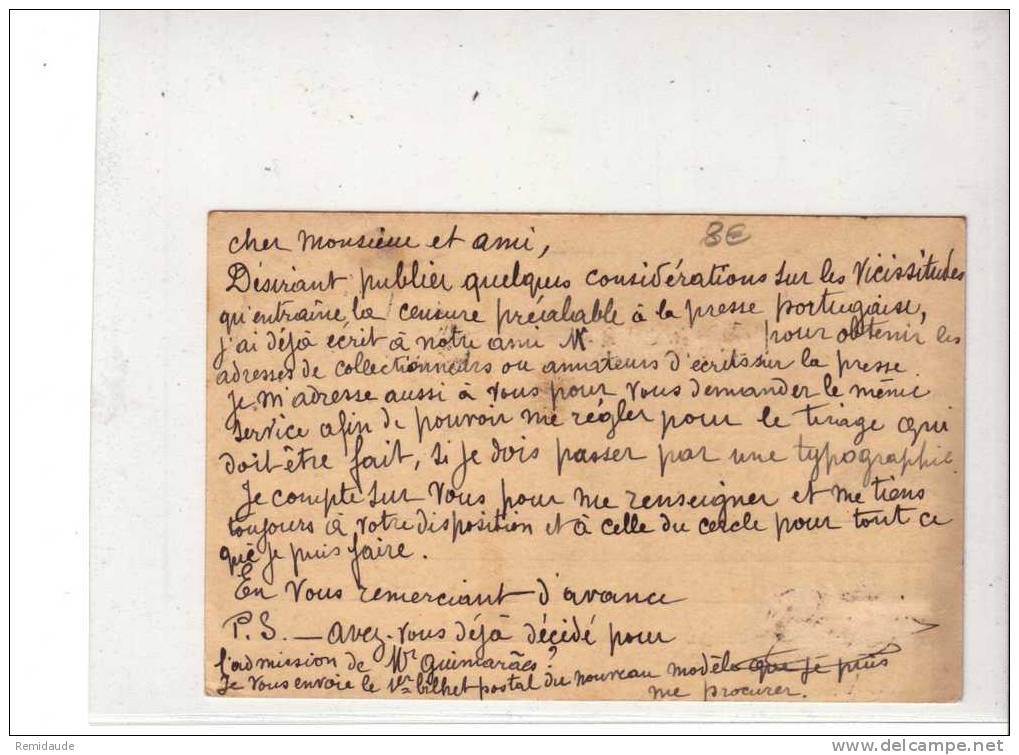 8€
cher Monsieur et ami,
Désirant publier quelques considérations sur les vicissitudes
qu'entraîne la censure préalable à la presse portugaise,
j'ai déjà écrit à notre ami Mr pour obtenir les
adresses de collectionneurs ou amateurs d'écrits sur la presse.
Je m'adresse aussi à vous pour vous demander le même
service afin de pouvoir me régler pour le tirage qui
doit être fait, si je dois passer par une typographie.
Je compte sur vous pour me renseigner et me tiens
toujours à votre disposition et à celle du cercle pour tout ce
que je puis faire.
En vous remerciant d'avance
P.S. — Avez-vous déjà décidé pour
l'admission de Mr Guimarães?
Je vous envoie le 1er bilhet postal du nouveau modèle que je puis
me procurer.
Remidaude
www.delcampe.net